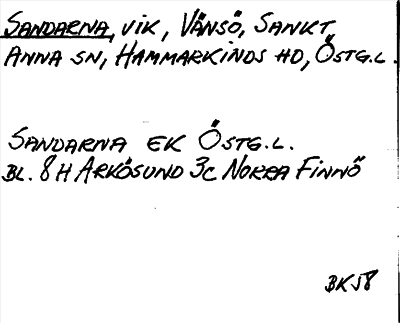 SANDARNA, VIK, VÄNSÖ, SANKT
ANNA SN, HAMMARKINDS HD, ÖSTG.L.
SANDARNA EK ÖSTG.L.
BL. 8H ARKÖSUND 3C NORRA FINNÖ
BK58